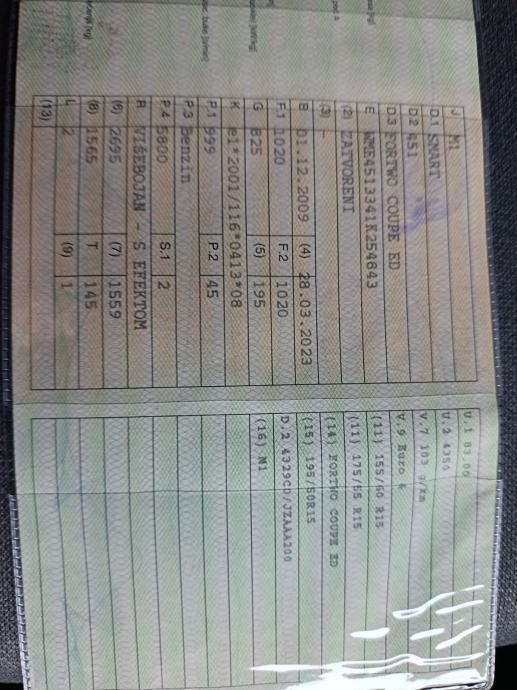 J M1
D.1 SMART
D.2 451
D.3 FORTWO COUPE ED
E WME4513341K254843
(2) ZATVORENI
(3) -
B 01.12.2009 (4) 28.03.2023
F.1 1020 F.2 1020
G 825 (5) 195
K e1*2001/116*0413*08
P.1 999 P.2 45
P.3 Benzin
P.4 5800 S.1 2
R VIŠEBOJAN - S EFEKTOM
(6) 2695 (7) 1559
(8) 1565 T 145
L 2 (9) 1
(13)
U.1 83.00
U.2 4350
V.7 103 g/km
V.9 Euro 4
(11) 155/60 R15
(11) 175/55 R15
(14) FORTWO COUPE ED
(15) 195/50R15
D.2 4329CD/JZAAA200
(16) M1